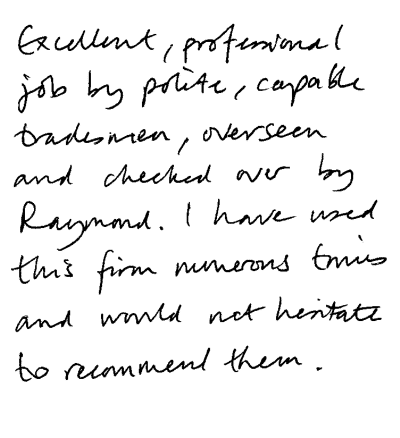 Excellent, professional
job by polite, capable
tradesmen, overseen
and checked over by
Raymond. I have used
this firm numerous times
and would not hesitate
to recommend them.